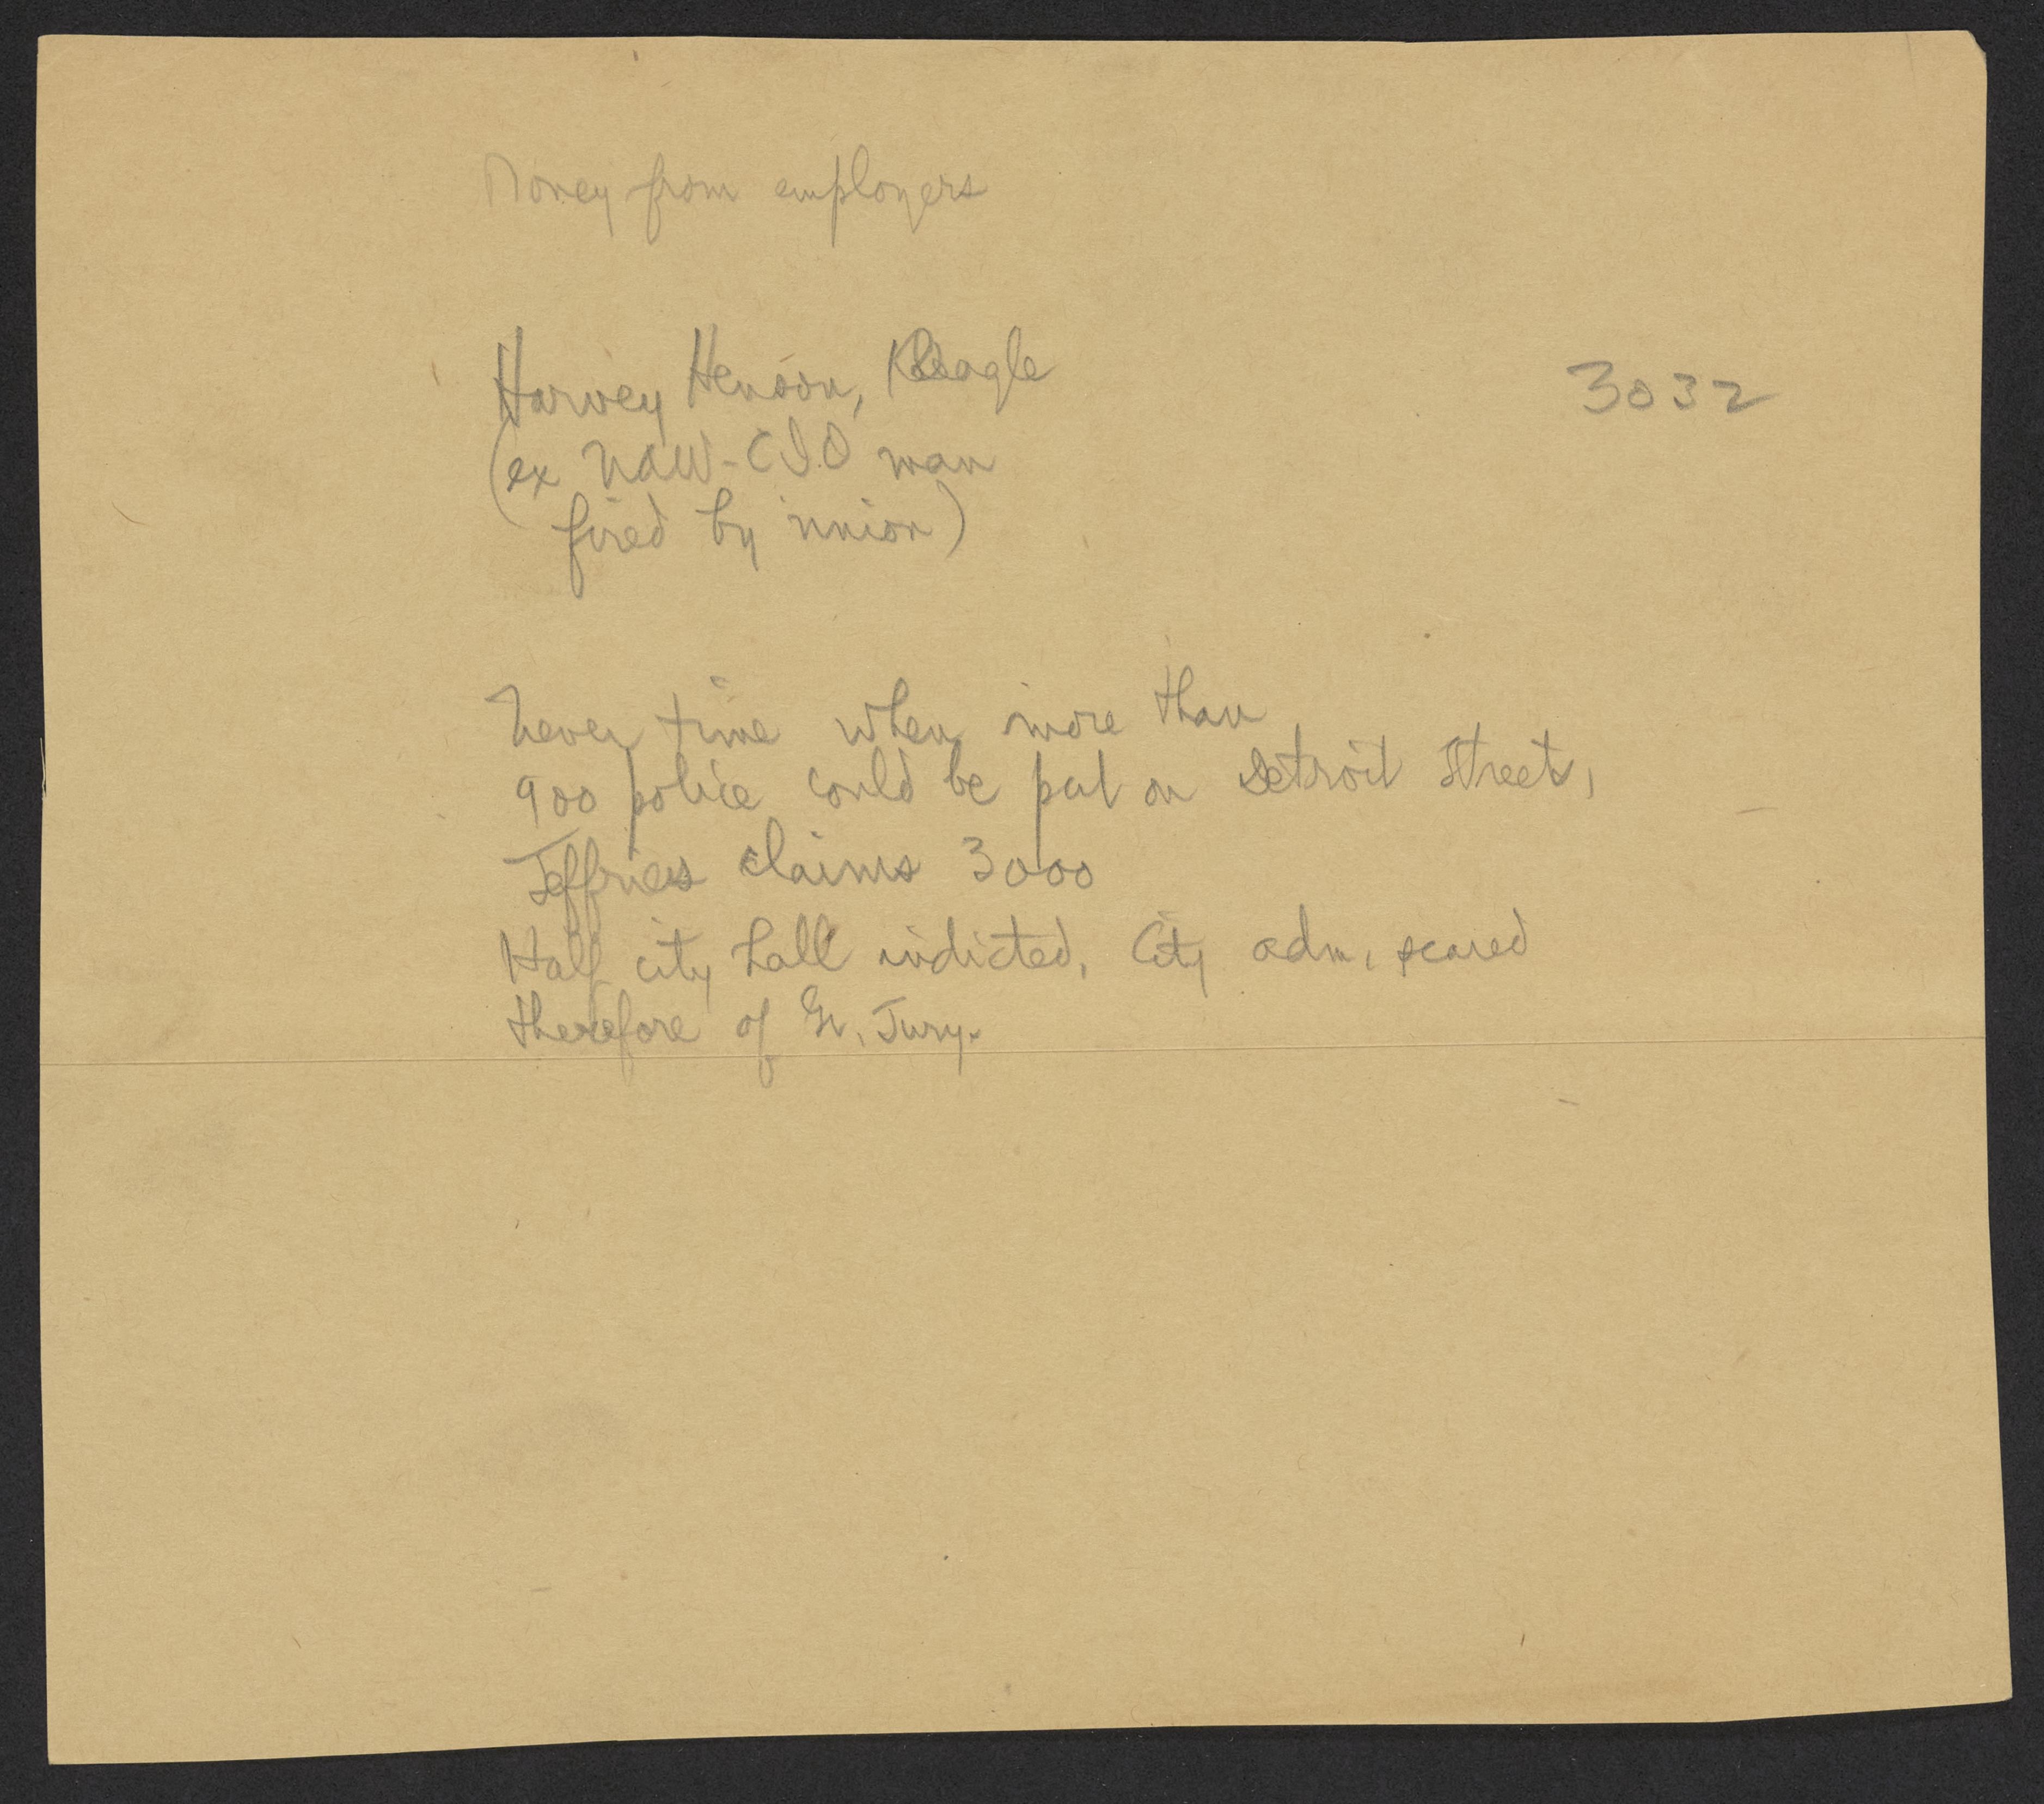 Money from employers
Harvey Henson, Kleagle
3032
(ex UAW-CIO man
fired by union)
Never time when more than
900 police could be put on Detroit streets,
Jeffries claims 3000
Half city hall indicted. City adm. scared
therefore of Gr. Jury.